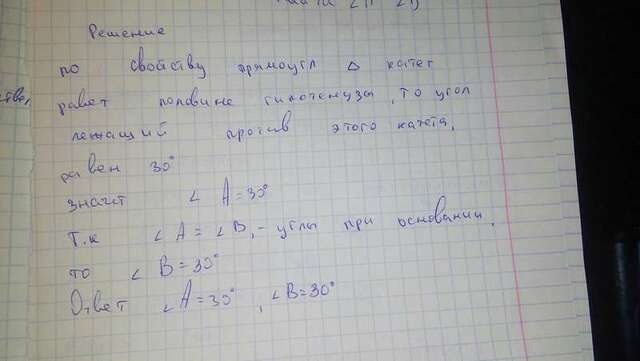 Найти ∠A ∠B
Решение
по свойству прямоугл △ катет
равет половине гипотенузы, то угол
лежащий против этого катета,
равен 30°
значит ∠ A = 30°
Т.к ∠ A = ∠ B, - углы при основании,
то ∠ B = 30°
Ответ ∠A = 30°, ∠B = 30°